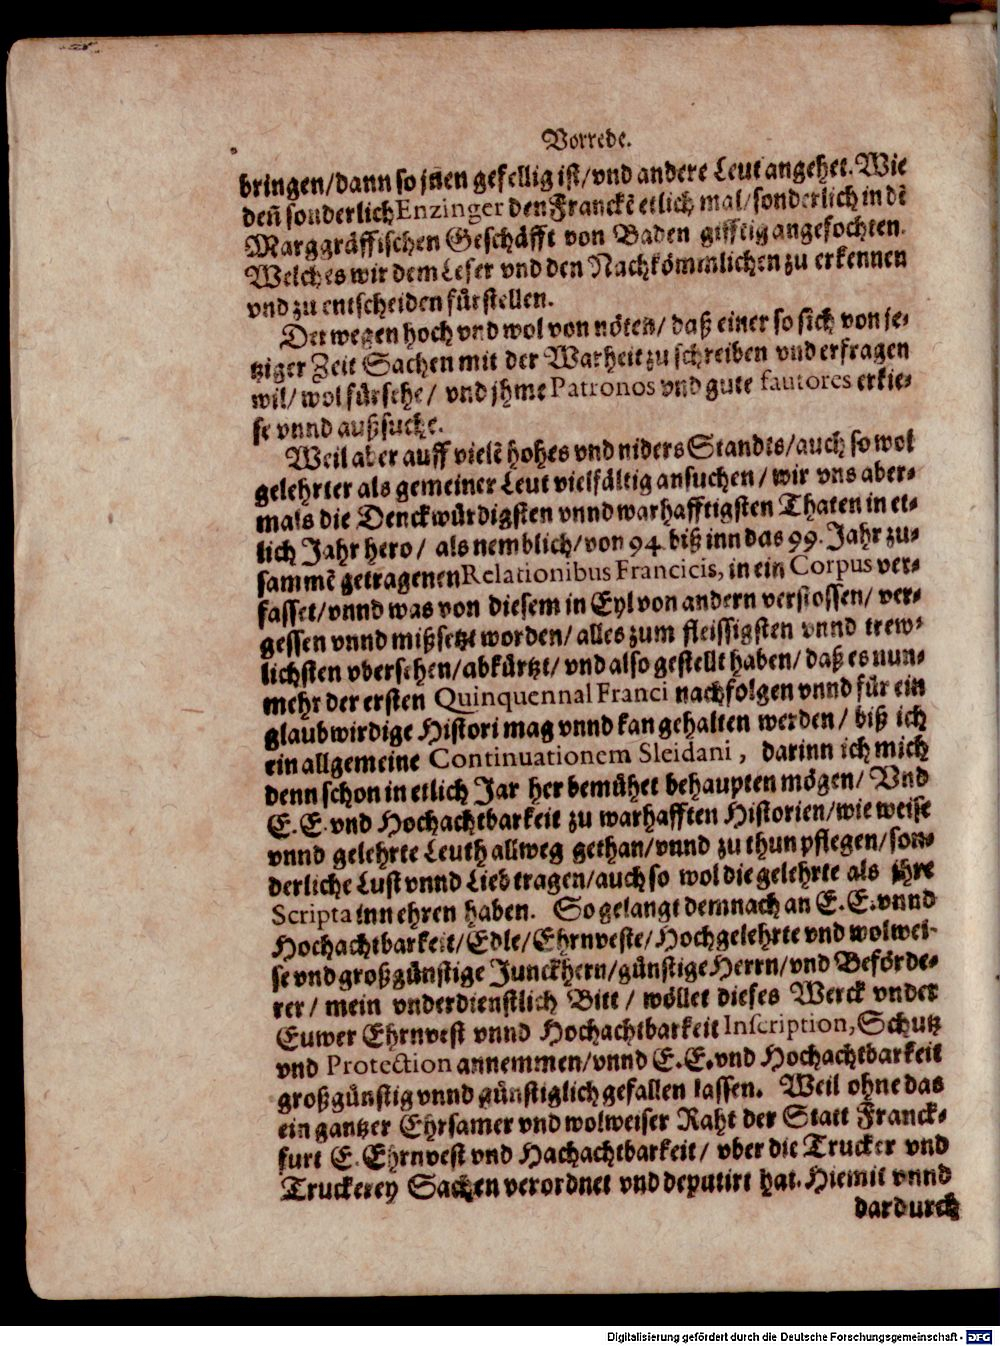 Vorrede.
bringen/dann so jnen gefellig ist/vnd andere Leut angehet. Wie
deñ sonderlich Enzinger den Franckẽ etlich mal/sonderlich in dẽ
Marggräffischen Geschäfft von Baden gifftig angefochten.
Welches wir dem Leser vnd den Nachkömmlichen zu erkennen
vnd zu entscheiden fürstellen.
Derwegen hoch vnd wol von nöten/ daß einer so sich von je-
tziger Zeit Sachen mit der Warheit zu schreiben vnd erfragen
wil/ wol fürsehe/ vnd jhme Patronos vnd gute fautores erkie-
se vnnd außsuche.
Weil aber auff vielẽ hohes vnd niders Standts/auch so wol
gelehrter als gemeiner Leut vielfältig ansuchen/ wir vns aber-
mals die Denckwürdigsten vnnd warhafftigsten Thaten in et-
lich Jahr hero/ als nemblich/von 94. biß inn das 99. Jahr zu-
sammẽ getragenen Relationibus Francicis, in ein Corpus ver-
fasset/vnnd was von diesem in Eyl von andern verstossen/ ver-
gessen vnnd mißsetzt worden/ alles zum fleissigsten vnnd trew-
lichsten vbersehen/abkürtzt/ vnd also gestellt haben/ daß es nun-
mehr der ersten Quinquennal Franci nachfolgen vnnd für ein
glaubwirdige Histori mag vnnd kan gehalten werden/ biß ich
ein allgemeine Continuationem Sleidani, darinn ich mich
denn schon in etlich Jar her bemühet behaupten mögen/ Vnd
E. E. vnd Hochachtbarkeit zu warhafften Historien/wie weise
vnnd gelehrte Leuth allweg gethan/vnnd zu thun pflegen/son-
derliche Lust vnnd Lieb tragen/auch so wol die gelehrte als jhre
Scripta inn ehren haben. So gelangt demnach an E. E. vnnd
Hochachtbarkeit/Edle/Ehrnveste/Hochgelehrte vnd wolwei-
se vnd großgünstige Junckhern/günstige Herrn/vnd Beförde-
rer/ mein vnderdienstlich Bitt/ wöllet dieses Werck vnder
Euwer Ehrnvest vnnd Hochachtbarkeit Inscription, Schutz
vnd Protection annemmen/vnnd E. E. vnd Hochachtbarkeit
großgünstig vnnd günstiglich gefallen lassen. Weil ohne das
ein gantzer Ehrsamer vnd wolweiser Raht der Statt Franck-
furt E. Ehrnvest vnd Hachachtbarkeit/ vber die Trucker vnd
Truckerey Sachen verordnet vnd deputirt hat. Hiemit vnnd
dardurch
Digitalisierung gefördert durch die Deutsche Forschungsgemeinschaft - DFG